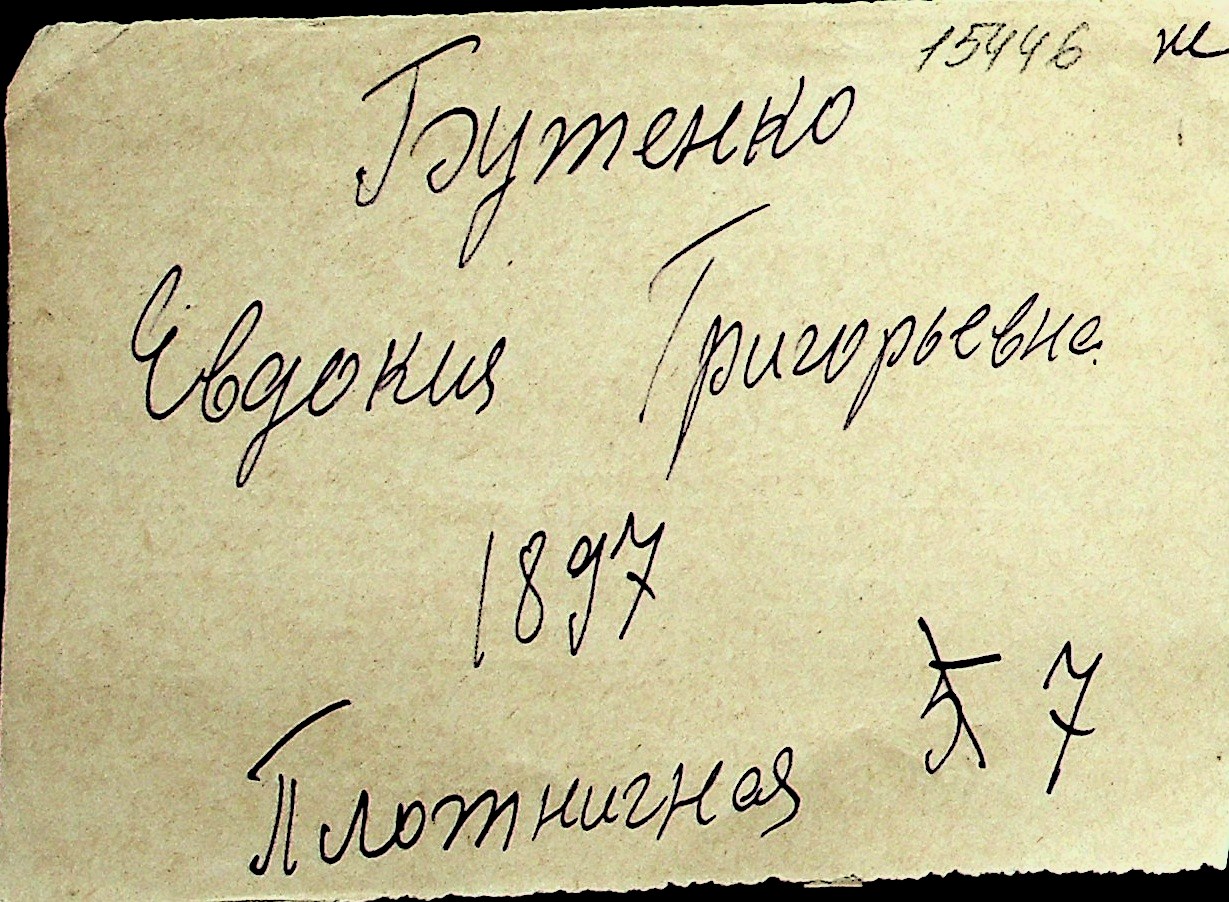 15446 ж
Бутенко
Евдокия Григорьевна
1897
Плотничная 5 7